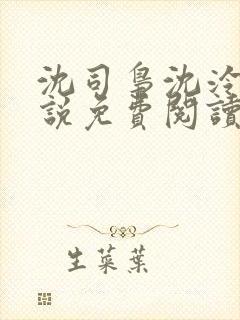 沈司鳥沈冷
說免費閱讀
生菜葉